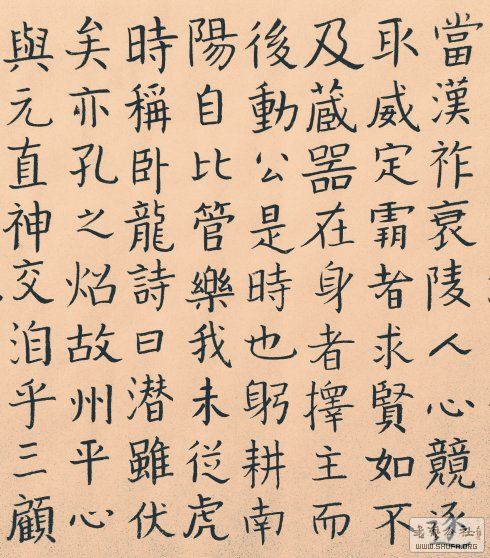 當漢祚衰陵人心競逐
取威定霸者求賢如不
及蔵器在身者擇主而
後動公是時也躬耕南
陽自比管樂我未從虎
時稱卧龍詩曰潜雖伏
矣亦孔之炤故州平心
與元直神交洎乎三顧
WWW.SHUFA.ORG